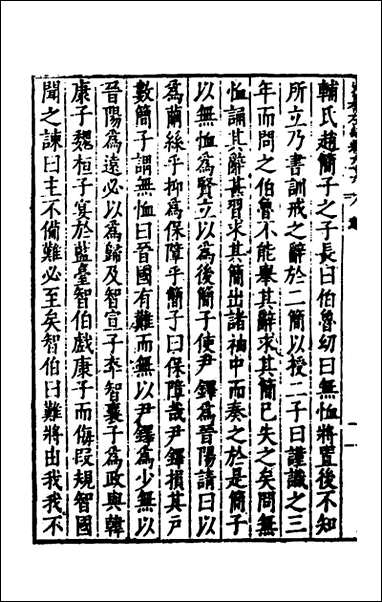 輔氏趙簡子之子長曰伯魯幼曰無恤將置後不知
所立乃書訓戒之辭於二簡以授二子曰謹識之三
年而問之伯魯不能舉其辭求其簡已失之矣問無
恤誦其辭甚習求其簡出諸袖中而奏之於是簡子
以無恤為賢立以為後簡子使尹鐸為晉陽請曰以
為繭絲乎抑為保障乎簡子曰保障哉尹鐸損其戶
數簡子謂無恤曰晉國有難而無以尹鐸為少無以
晉陽為遠必以為歸及智宣子卒智襄子為政與韓
康子魏桓子宴於藍臺智伯戲康子而侮段規智國
聞之諫曰主不備難必至矣智伯曰難將由我我不